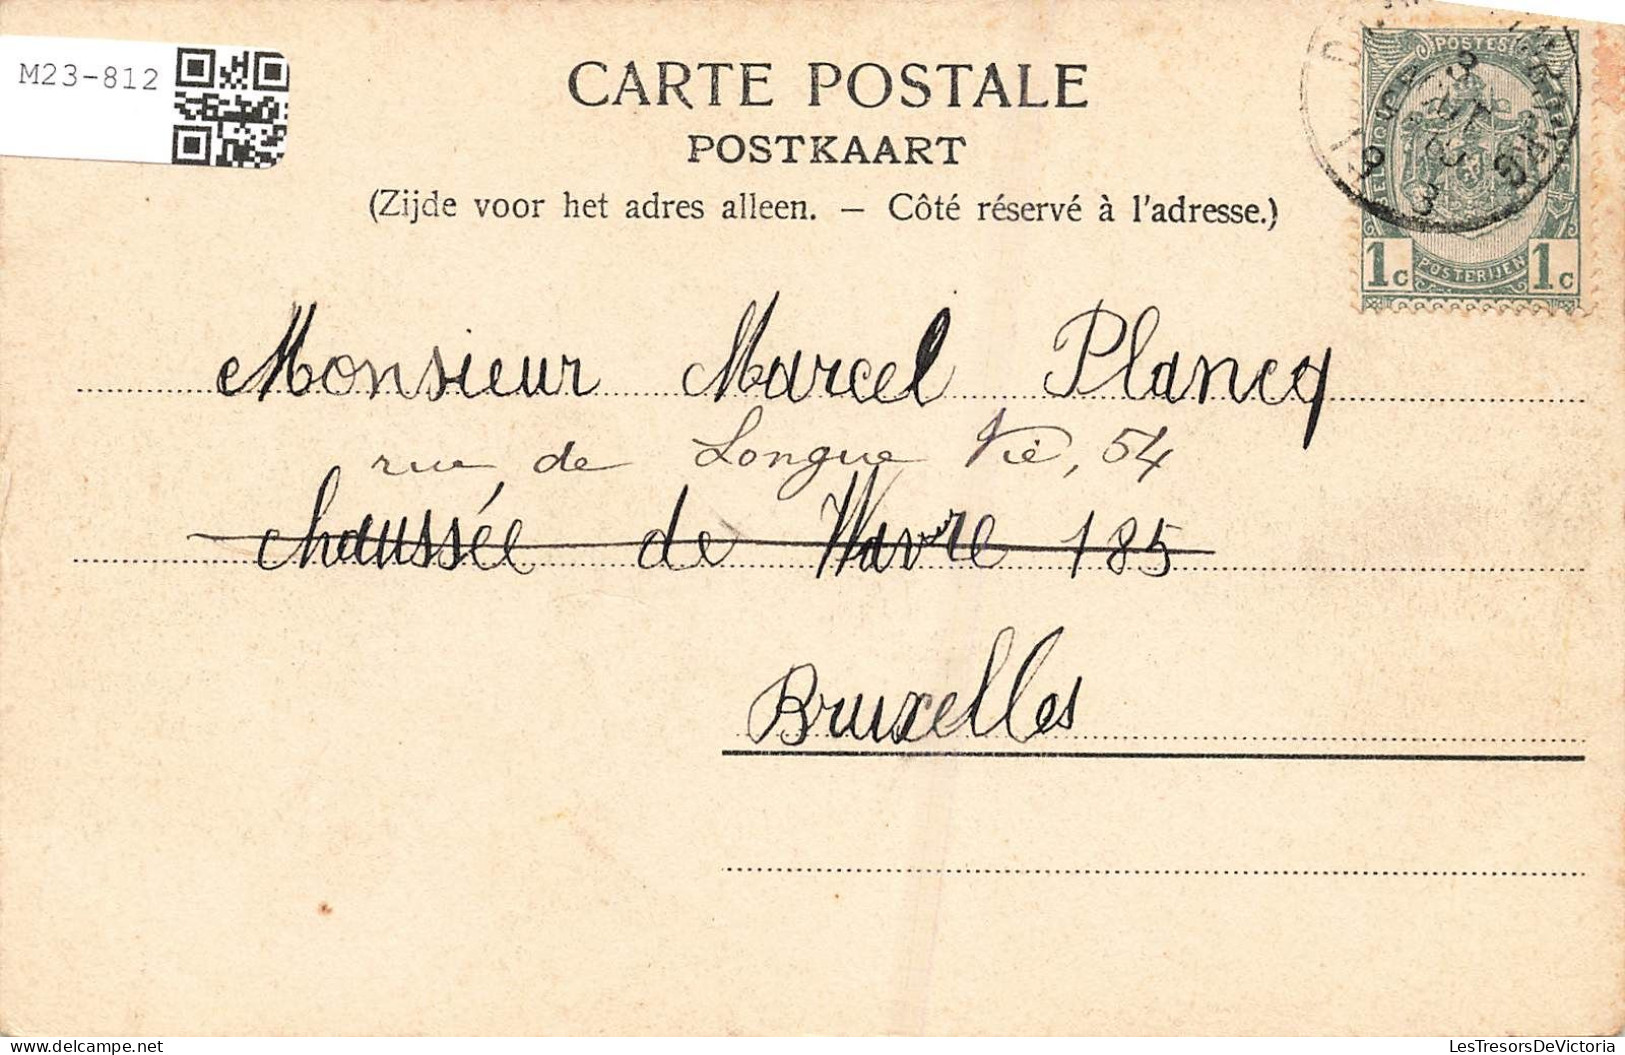 M23-812
CARTE POSTALE
POSTKAART
(Zijde voor het adres alleen. — Côté réservé à l'adresse.)
POSTES
POSTERIJEN
1c 1c
Monsieur Marcel Plancq
rue de Longue Vie, 54
chaussée de Wavre 185
Bruxelles
LesTresorsDeVictoria